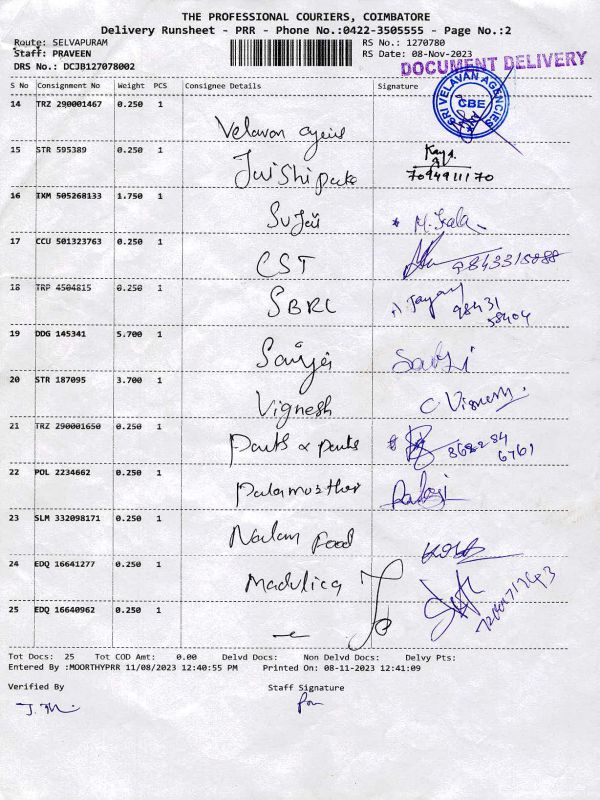 THE PROFESSIONAL COURIERS, COIMBATORE
Delivery Runsheet - PRR - Phone No.:0422-3505555 - Page No.:2
Route: SELVAPURAM RS No.: 1270780
Staff: PRAVEEN RS Date: 08-Nov-2023
DRS No.: DCJB127078002 DOCUMENT DELIVERY
S No Consignment No Weight PCS Consignee Details Signature
SRI VELAVAN AGENCIES CBE
14 TRZ 290001467 0.250 1
Velavan
15 STR 595389 0.250 1
7094911170
16 IXM 505268133 1.750 1
M. Kala
17 CCU 501323763 0.250 1
CST 9843315888
18 TRP 4504815 0.250 1
SBRL 98431
58404
19 DDG 145341 5.700 1
20 STR 187095 3.700 1
Vignesh C. Vignesh
21 TRZ 290001650 0.250 1
Parts & parts 868284
6761
22 POL 2234662 0.250 1
23 SLM 332098171 0.250 1
Nalam food
24 EDQ 16641277 0.250 1
25 EDQ 16640962 0.250 1
Tot Docs: 25 Tot COD Amt: 0.00 Delvd Docs: Non Delvd Docs: Delvy Pts:
Entered By :MOORTHYPRR 11/08/2023 12:40:55 PM Printed On: 08-11-2023 12:41:09
Verified By Staff Signature